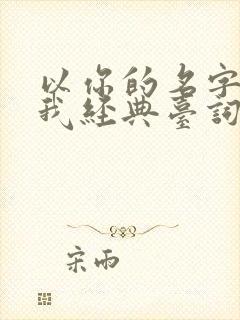 以你的名字
我經典臺詞
宋雨